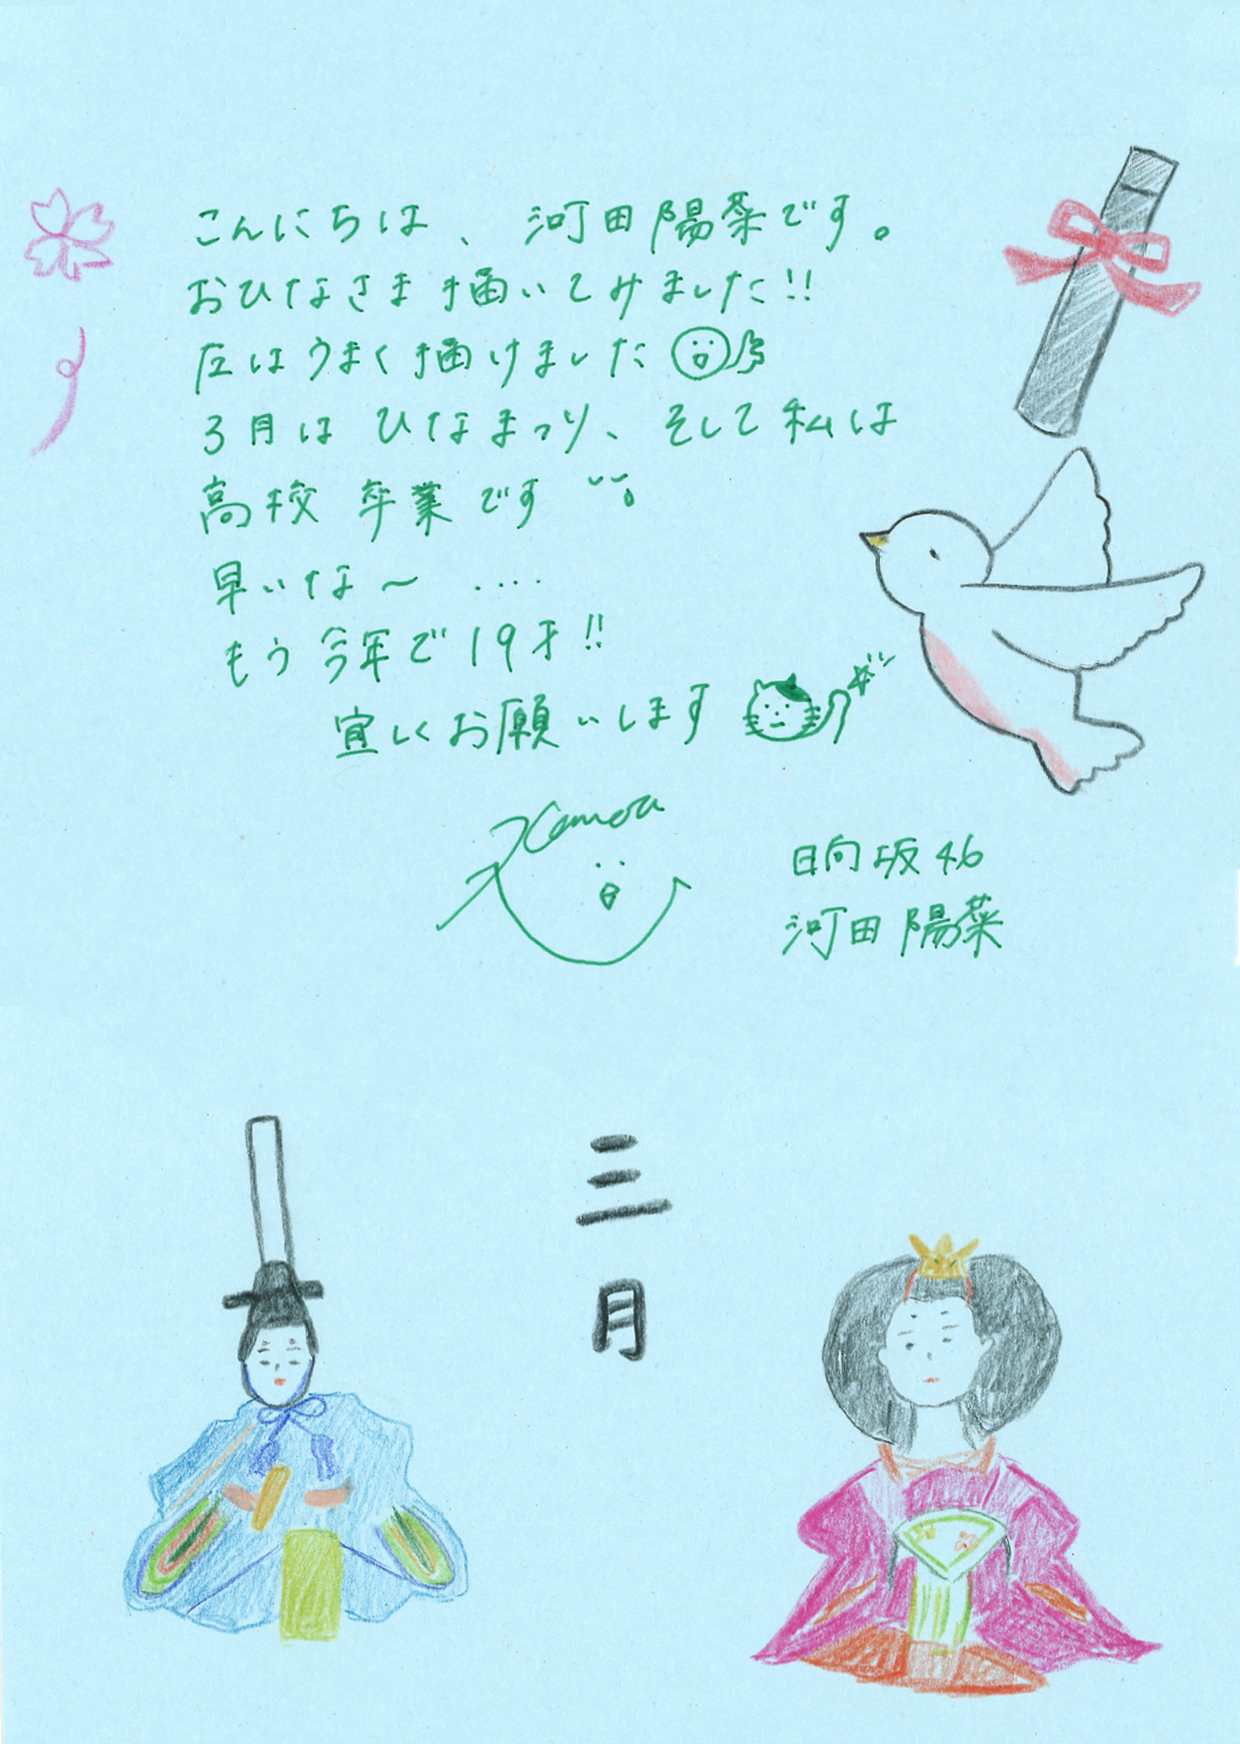 こんにちは、河田陽菜です。
おひなさま描いてみました!!
左はうまく描けました
3月はひなまつり、そして私は
高校卒業です
早いな〜 ....
もう今年で19才!!
宜しくお願いします
日向坂46
河田陽菜
三月